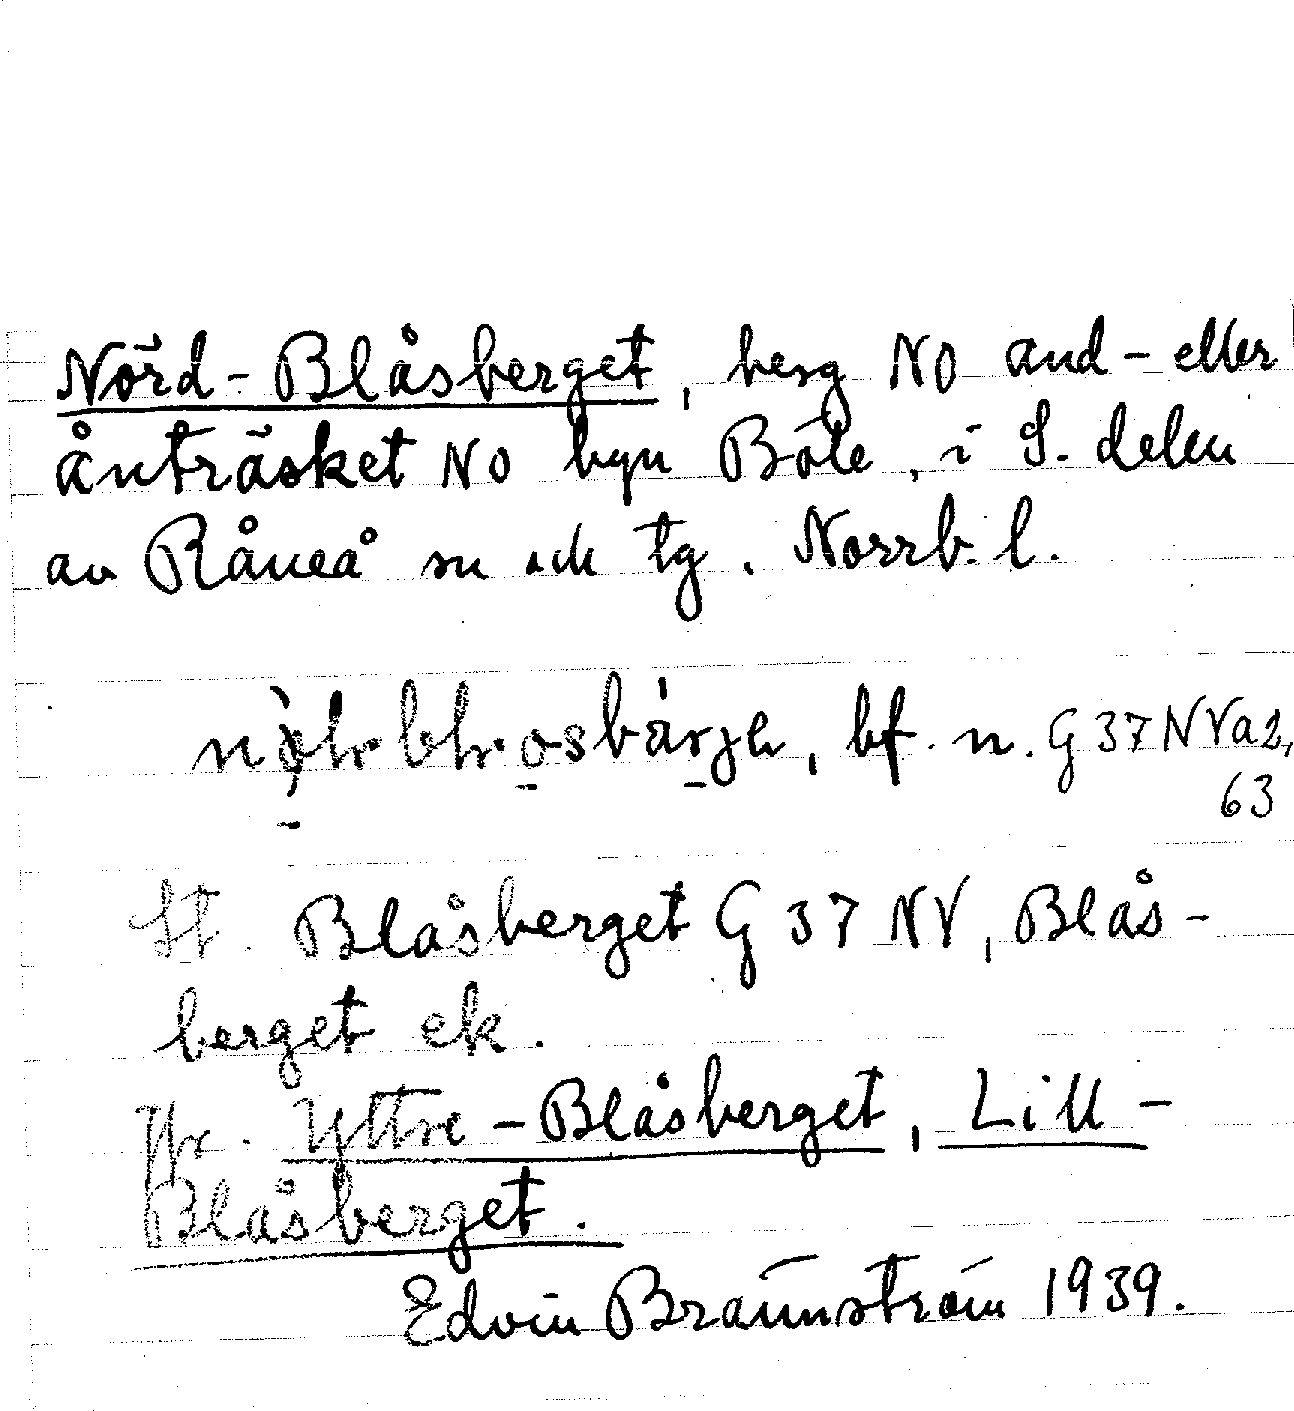 Nörd-Blåsberget, berg NO and- eller
ånträsket NO byn Böle, i S. delen
av Råneå sn och tg. Norrb. l.
bf. n. G 37 NVa2,
63
St. Blåsberget G 37 NV, Blås-
berget ek.
Yttre-Blåsberget, Lill-
Blåsberget.
Edvin Brännström 1939.